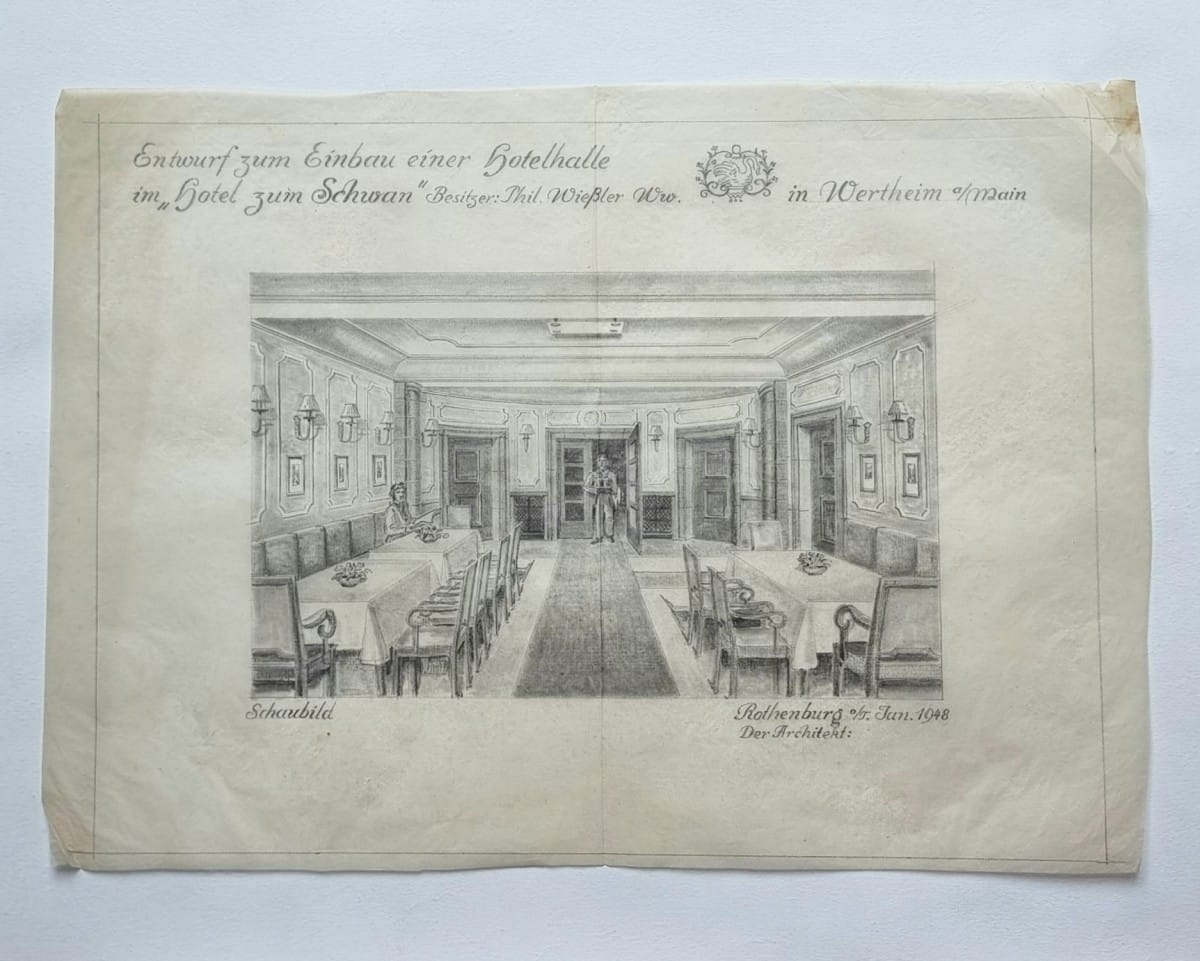 Entwurf zum Einbau einer Hotelhalle
im „Hotel zum Schwan" Besitzer: Phil. Wießler Ww. in Wertheim a/Main
Schaubild
Rothenburg o/T. Jan. 1948
Der Architekt: